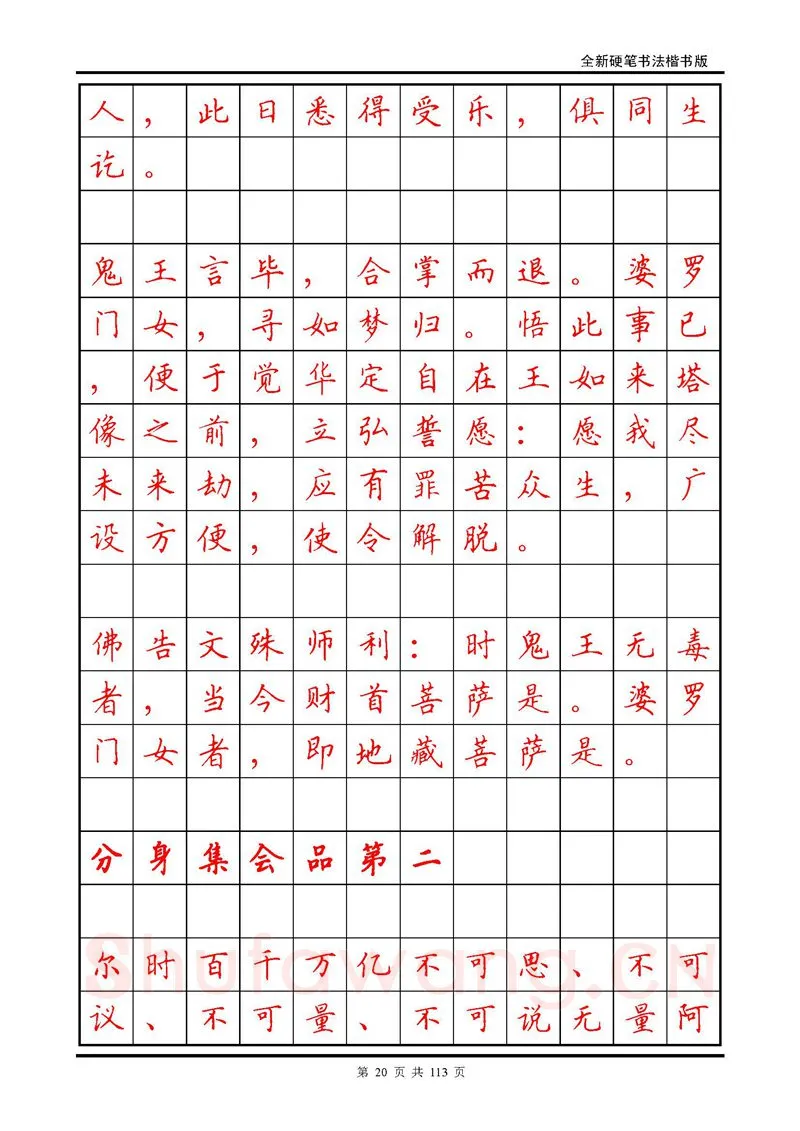 全新硬笔书法楷书版
人，此日悉得受乐，俱同生
讫。
鬼王言毕，合掌而退。婆罗
门女，寻如梦归。悟此事已
，便于觉华定自在王如来塔
像之前，立弘誓愿：愿我尽
未来劫，应有罪苦众生，广
设方便，使令解脱。
佛告文殊师利：时鬼王无毒
者，当今财首菩萨是。婆罗
门女者，即地藏菩萨是。
分身集会品第二
尔时百千万亿不可思、不可
议、不可量、不可说无量阿
Shufawang.CN
第 20 页 共 113 页